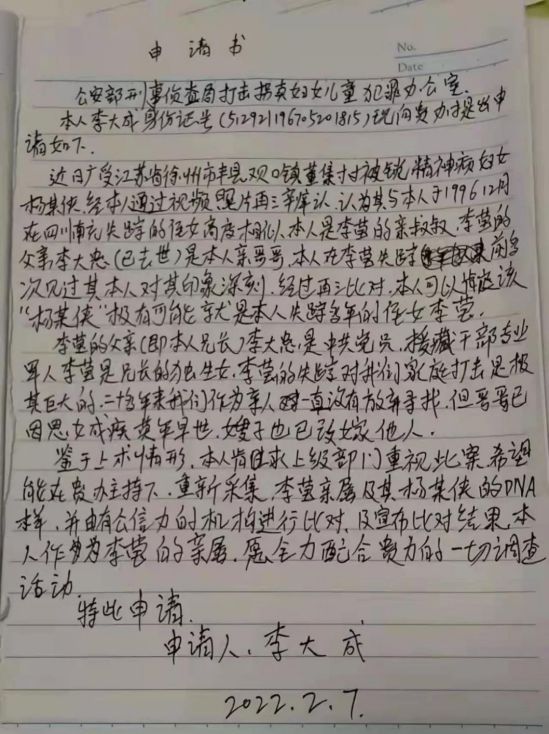 申请书
No.
Date
公安部刑事侦查局打击拐卖妇女儿童犯罪办公室
本人李大成身份证号(512921196705201815)现向贵办提出申
请如下.
近日广受江苏省徐州市丰县欢口镇董集村被锁精神病妇女
杨某侠.经本人通过视频照片再三辨认.认为其与本人于1996 12月
在四川南充失踪的侄女高度相似.本人是李莹的亲叔叔.李莹的
父亲李大忠(已去世)是本人亲哥哥.本人在李莹失踪前多
次见过其本人对其印象深刻.经过再三比对.本人可以肯定该
"杨某侠"极有可能就是本人失踪多年的侄女李莹.
李莹的父亲(即本人兄长)李大忠.是中共党员.援藏干部专业
军人李莹是兄长的独生女.李莹的失踪对我们家庭打击是极
其巨大的.二十多年来我们作为亲人一直没有放弃寻找.但哥哥已
因思女成疾英年早世.嫂子也已改嫁他人.
鉴于上术情形.本人肯请求上级部门重视此案.希望
能在贵办主持下.重新采集.李莹亲属及其杨某侠的DNA
本样.并由有公信力的机构进行比对.及宣布比对结果.本
人作为李莹的亲属.愿全力配合贵方的一切调查
活动.
特此申请.
申请人.李大成
2022.2.7.